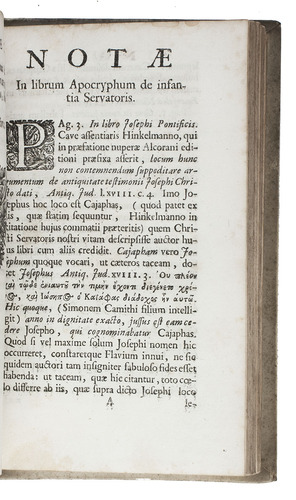 NOTÆ
In librum Apocryphum de infan-
tia Servatoris.
PAg. 3. In libro Josephi Pontificis.
Cave assentiaris Hinkelmanno, qui
in præfatione nuperæ Alcorani edi-
tioni præfixa asserit, locum hunc
non contemnendum suppeditare ar-
gumentum de antiquitate testimonii Josephi Chri-
sto dati, Antiq. Jud. l. XVIII. c. 4. Imo Jo-
sephus hoc loco est Cajaphas, (quod patet ex
iis, quæ statim sequuntur, Hinkelmanno in
citatione hujus commatii præteritis) quem Chri-
sti Servatoris nostri vitam descripsisse auctor hu-
jus libri cum aliis credidit. Cajapham vero Jo-
sephum quoque vocari, ut cæteros taceam, do-
cet Josephus Antiq. Jud. XVIII. 3. Οὐ πλέον
καὶ τῷδε ἐνιαυτῦ τὴν τιμὴν ἔχοντι διεγένετο χρό-
ν۞, καὶ Ἰώσηπ۞ ὁ Καϊάφας διάδοχος ἦν αὐτῷ.
Hic quoque, (Simonem Camithi filium intelli-
git) anno in dignitate exacto, jussus est eam ce-
dere Josepho, qui cognominabatur Cajaphas.
Quod si vel maxime solum Josephi nomen hic
occurreret, constaretque Flavium innui, ne sic
quidem auctori tam insigniter fabuloso fides esset
habenda: ut taceam, quæ hic citantur, toto cœ-
lo differre ab iis, quæ supra dicto Josephi loco
A
le-